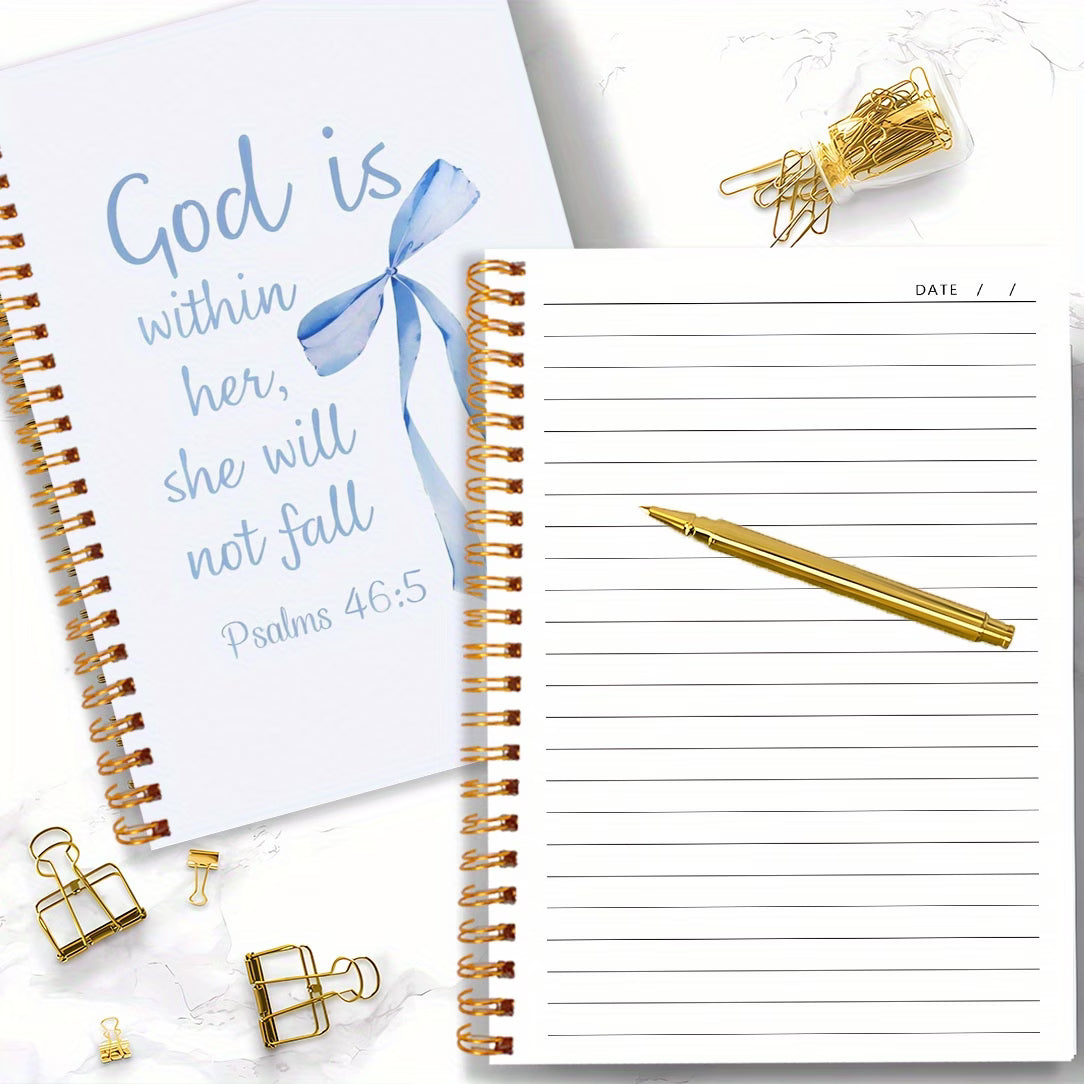 God is
within
her,
she will
not fall
Psalms 46:5
DATE / /